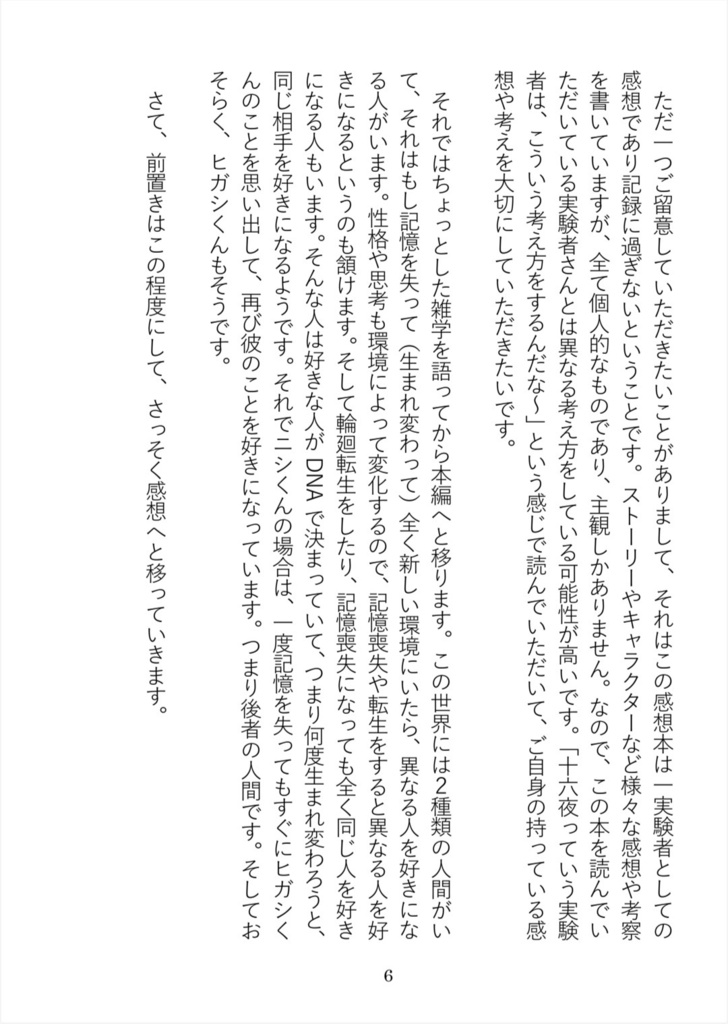 ただ一つご留意していただきたいことがありまして、それはこの感想本は一実験者としての
感想であり記録に過ぎないということです。ストーリーやキャラクターなど様々な感想や考察
を書いていますが、全て個人的なものであり、主観しかありません。なので、この本を読んでい
ただいている実験者さんとは異なる考え方をしている可能性が高いです。「十六夜っていう実験
者は、こういう考え方をするんだな〜」という感じで読んでいただいて、ご自身の持っている感
想や考えを大切にしていただきたいです。
それではちょっとした雑学を語ってから本編へと移ります。この世界には2種類の人間がい
て、それはもし記憶を失って（生まれ変わって）全く新しい環境にいたら、異なる人を好きにな
る人がいます。性格や思考も環境によって変化するので、記憶喪失や転生をすると異なる人を好
きになるというのも頷けます。そして輪廻転生をしたり、記憶喪失になっても全く同じ人を好き
になる人もいます。そんな人は好きな人が DNA で決まっていて、つまり何度生まれ変わろうと、
同じ相手を好きになるようです。それでニシくんの場合は、一度記憶を失ってもすぐにヒガシく
んのことを思い出して、再び彼のことを好きになっています。つまり後者の人間です。そしてお
そらく、ヒガシくんもそうです。
さて、前置きはこの程度にして、さっそく感想へと移っていきます。
6